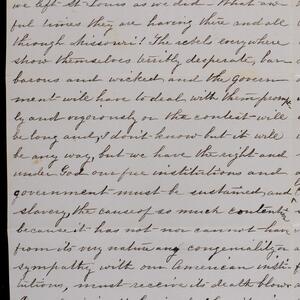 we left St. Louis as we did. What aw-
ful times they are having there and all
through Missouri! The rebels everywhere
show themselves terribly desperate, bar
barous and wicked and the Govern
ment will have to deal with them prompt
ly and vigorously or the contest will
be long and, I don't know but it will
be any way, but we have the right and
under God our free institutions and
government must be sustained, and
slavery, the cause of so much contention
because it has not nor cannot have
from its very nature any congeniality or
sympathy with our American insti-
tutions, must receive its death blow